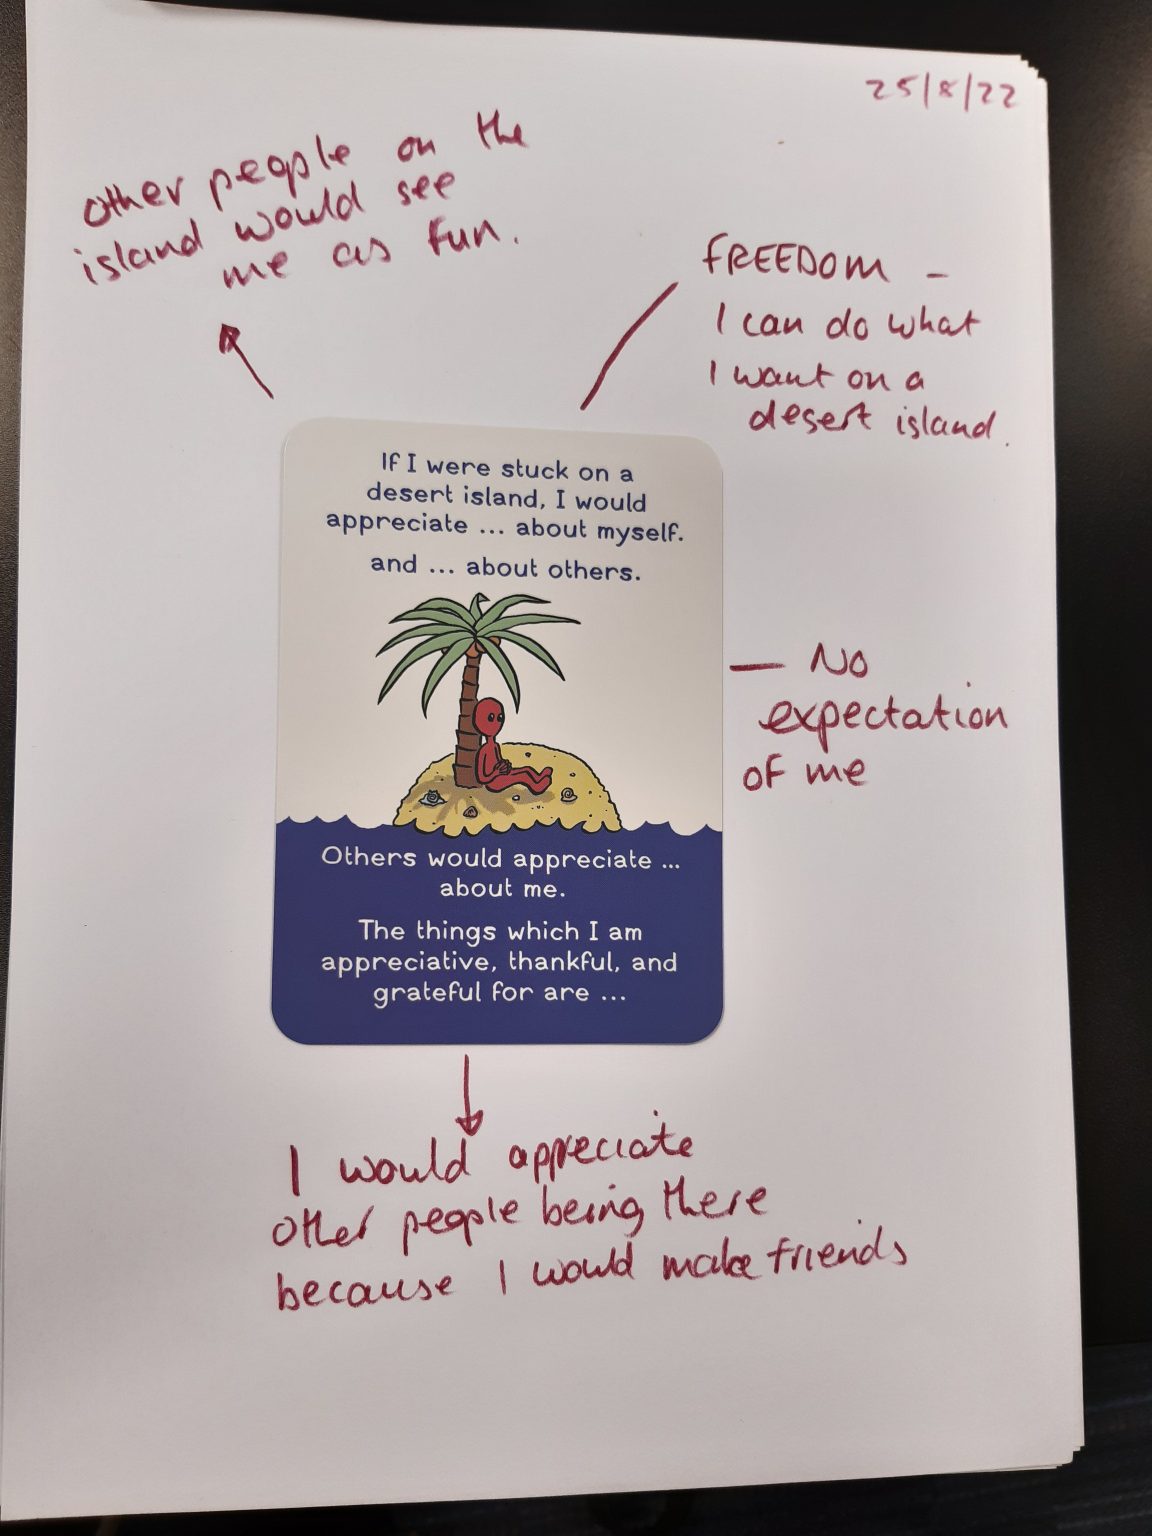 25/8/22
Other people on the
island would see
me as fun.
FREEDOM -
I can do what
I want on a
desert island.
If I were stuck on a
desert island, I would
appreciate ... about myself.
and ... about others.
— No
expectation
of me
Others would appreciate ...
about me.
The things which I am
appreciative, thankful, and
grateful for are ...
I would appreciate
other people being there
because I would make friends